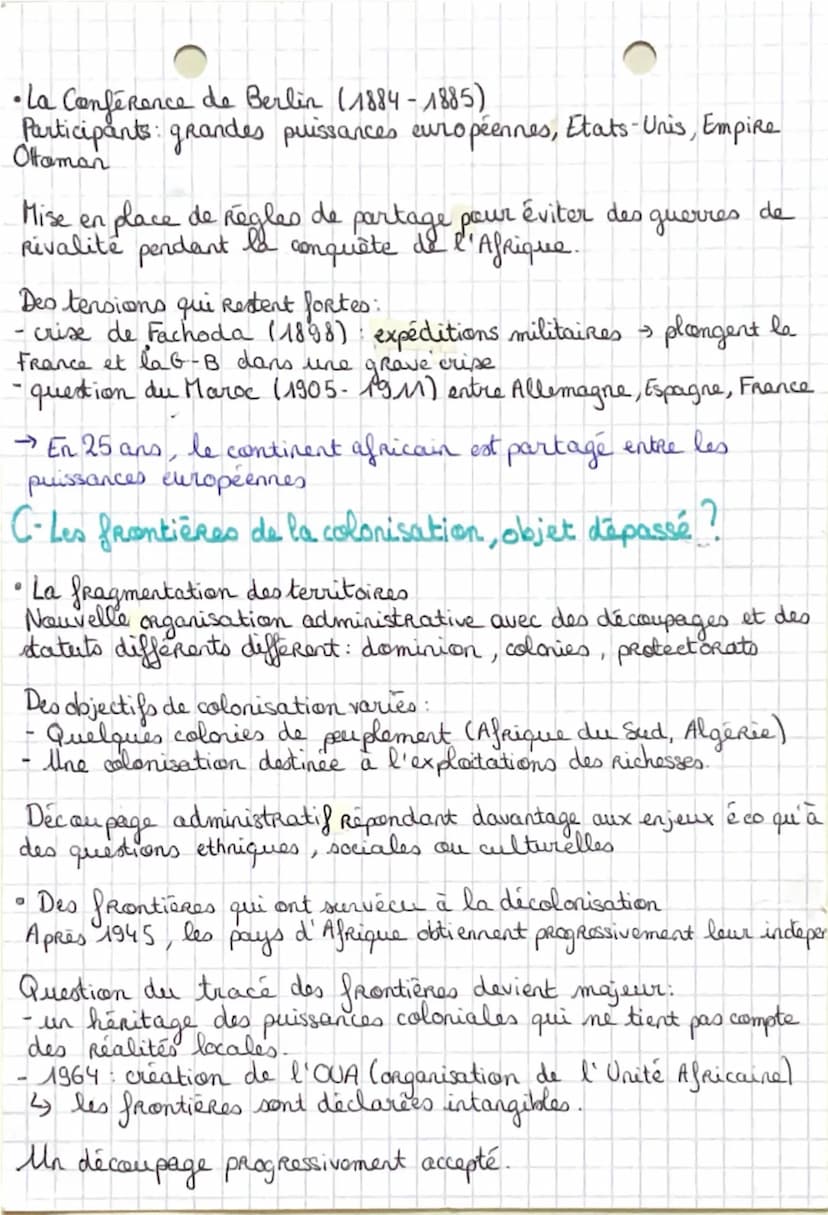 • La Conférence de Berlin (1884 - 1885)
Participants : grandes puissances européennes, Etats-Unis, Empire
Ottoman
Mise en place de Règles de partage pour éviter des guerres de
rivalité pendant la conquête de l'Afrique.
Des tensions qui restent fortes :
- crise de Fachoda (1898) : expéditions militaires → plongent la
France et la G-B dans une grave crise
- question du Maroc (1905 - 1911) entre Allemagne, Espagne, France
→ En 25 ans, le continent africain est partagé entre les
puissances européennes
C- Les frontières de la colonisation, objet dépassé ?
• La fragmentation des territoires
Nouvelle organisation administrative avec des découpages et des
statuts différents différent : dominion, colonies, protectorats
Des objectifs de colonisation variés :
- Quelques colonies de peuplement (Afrique du Sud, Algérie)
- Une colonisation destinée à l'exploitations des richesses.
Découpage administratif répondant davantage aux enjeux éco qu'à
des questions ethniques, sociales ou culturelles
• Des frontières qui ont survécu à la décolonisation
Après 1945, les pays d'Afrique obtiennent progressivement leur indepen
Question du tracé des frontières devient majeur :
- un héritage des puissances coloniales qui ne tient pas compte
des réalités locales.
- 1964 : création de l'OUA (organisation de l'Unité Africaine)
↳ les frontières sont déclarées intangibles.
Un découpage progressivement accepté.